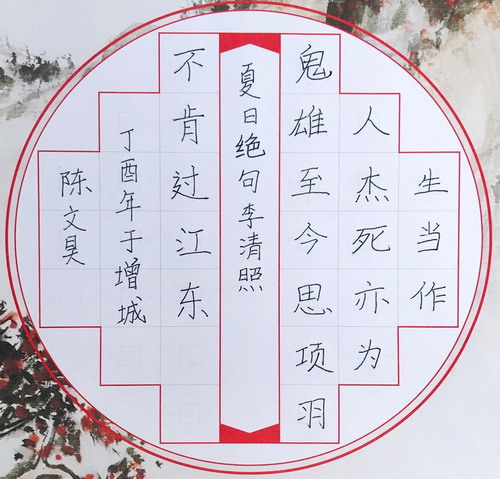 生当作
人杰死亦为
鬼雄至今思项羽
夏日绝句李清照
不肯过江东
丁酉年于增城
陈文昊